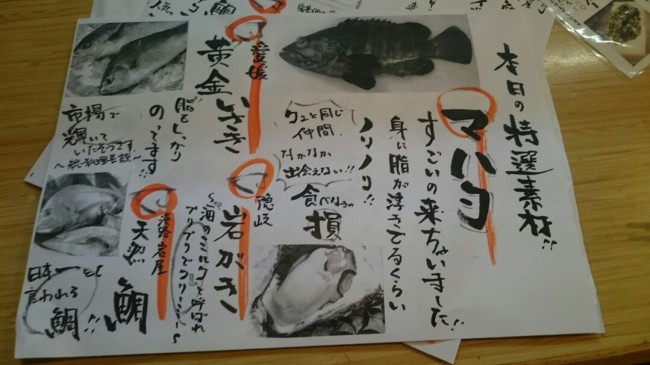 本日の特選素材!!
マハタ
すごいの来ちゃいました!!
身に脂が浮きてるくらい
ノリノリ!!
クエと同じ
仲間!
なかなか
出会えない!!
食べなきゃ
損
愛媛
黄金いさき
脂もしっかり
のってます!!
市場で
輝いて
いたそうです
〜統料理長談〜
隠岐
岩がき
〜海のミルクと呼ばれ
プリプリでクリーミー〜
淡路岩屋
天然
鯛
日本一とも
言われる
鯛!!